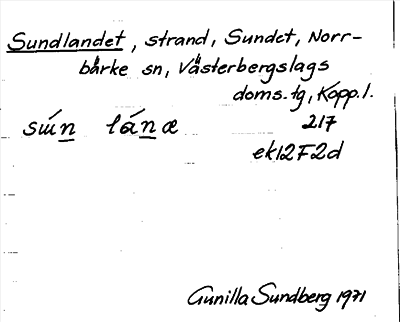 Sundlandet, strand, Sundet, Norr-
bärke sn, Västerbergslags
doms.tg, Kopp.l.
sɯ́n lánæ 217
ek12F2d
Gunilla Sundberg 1971